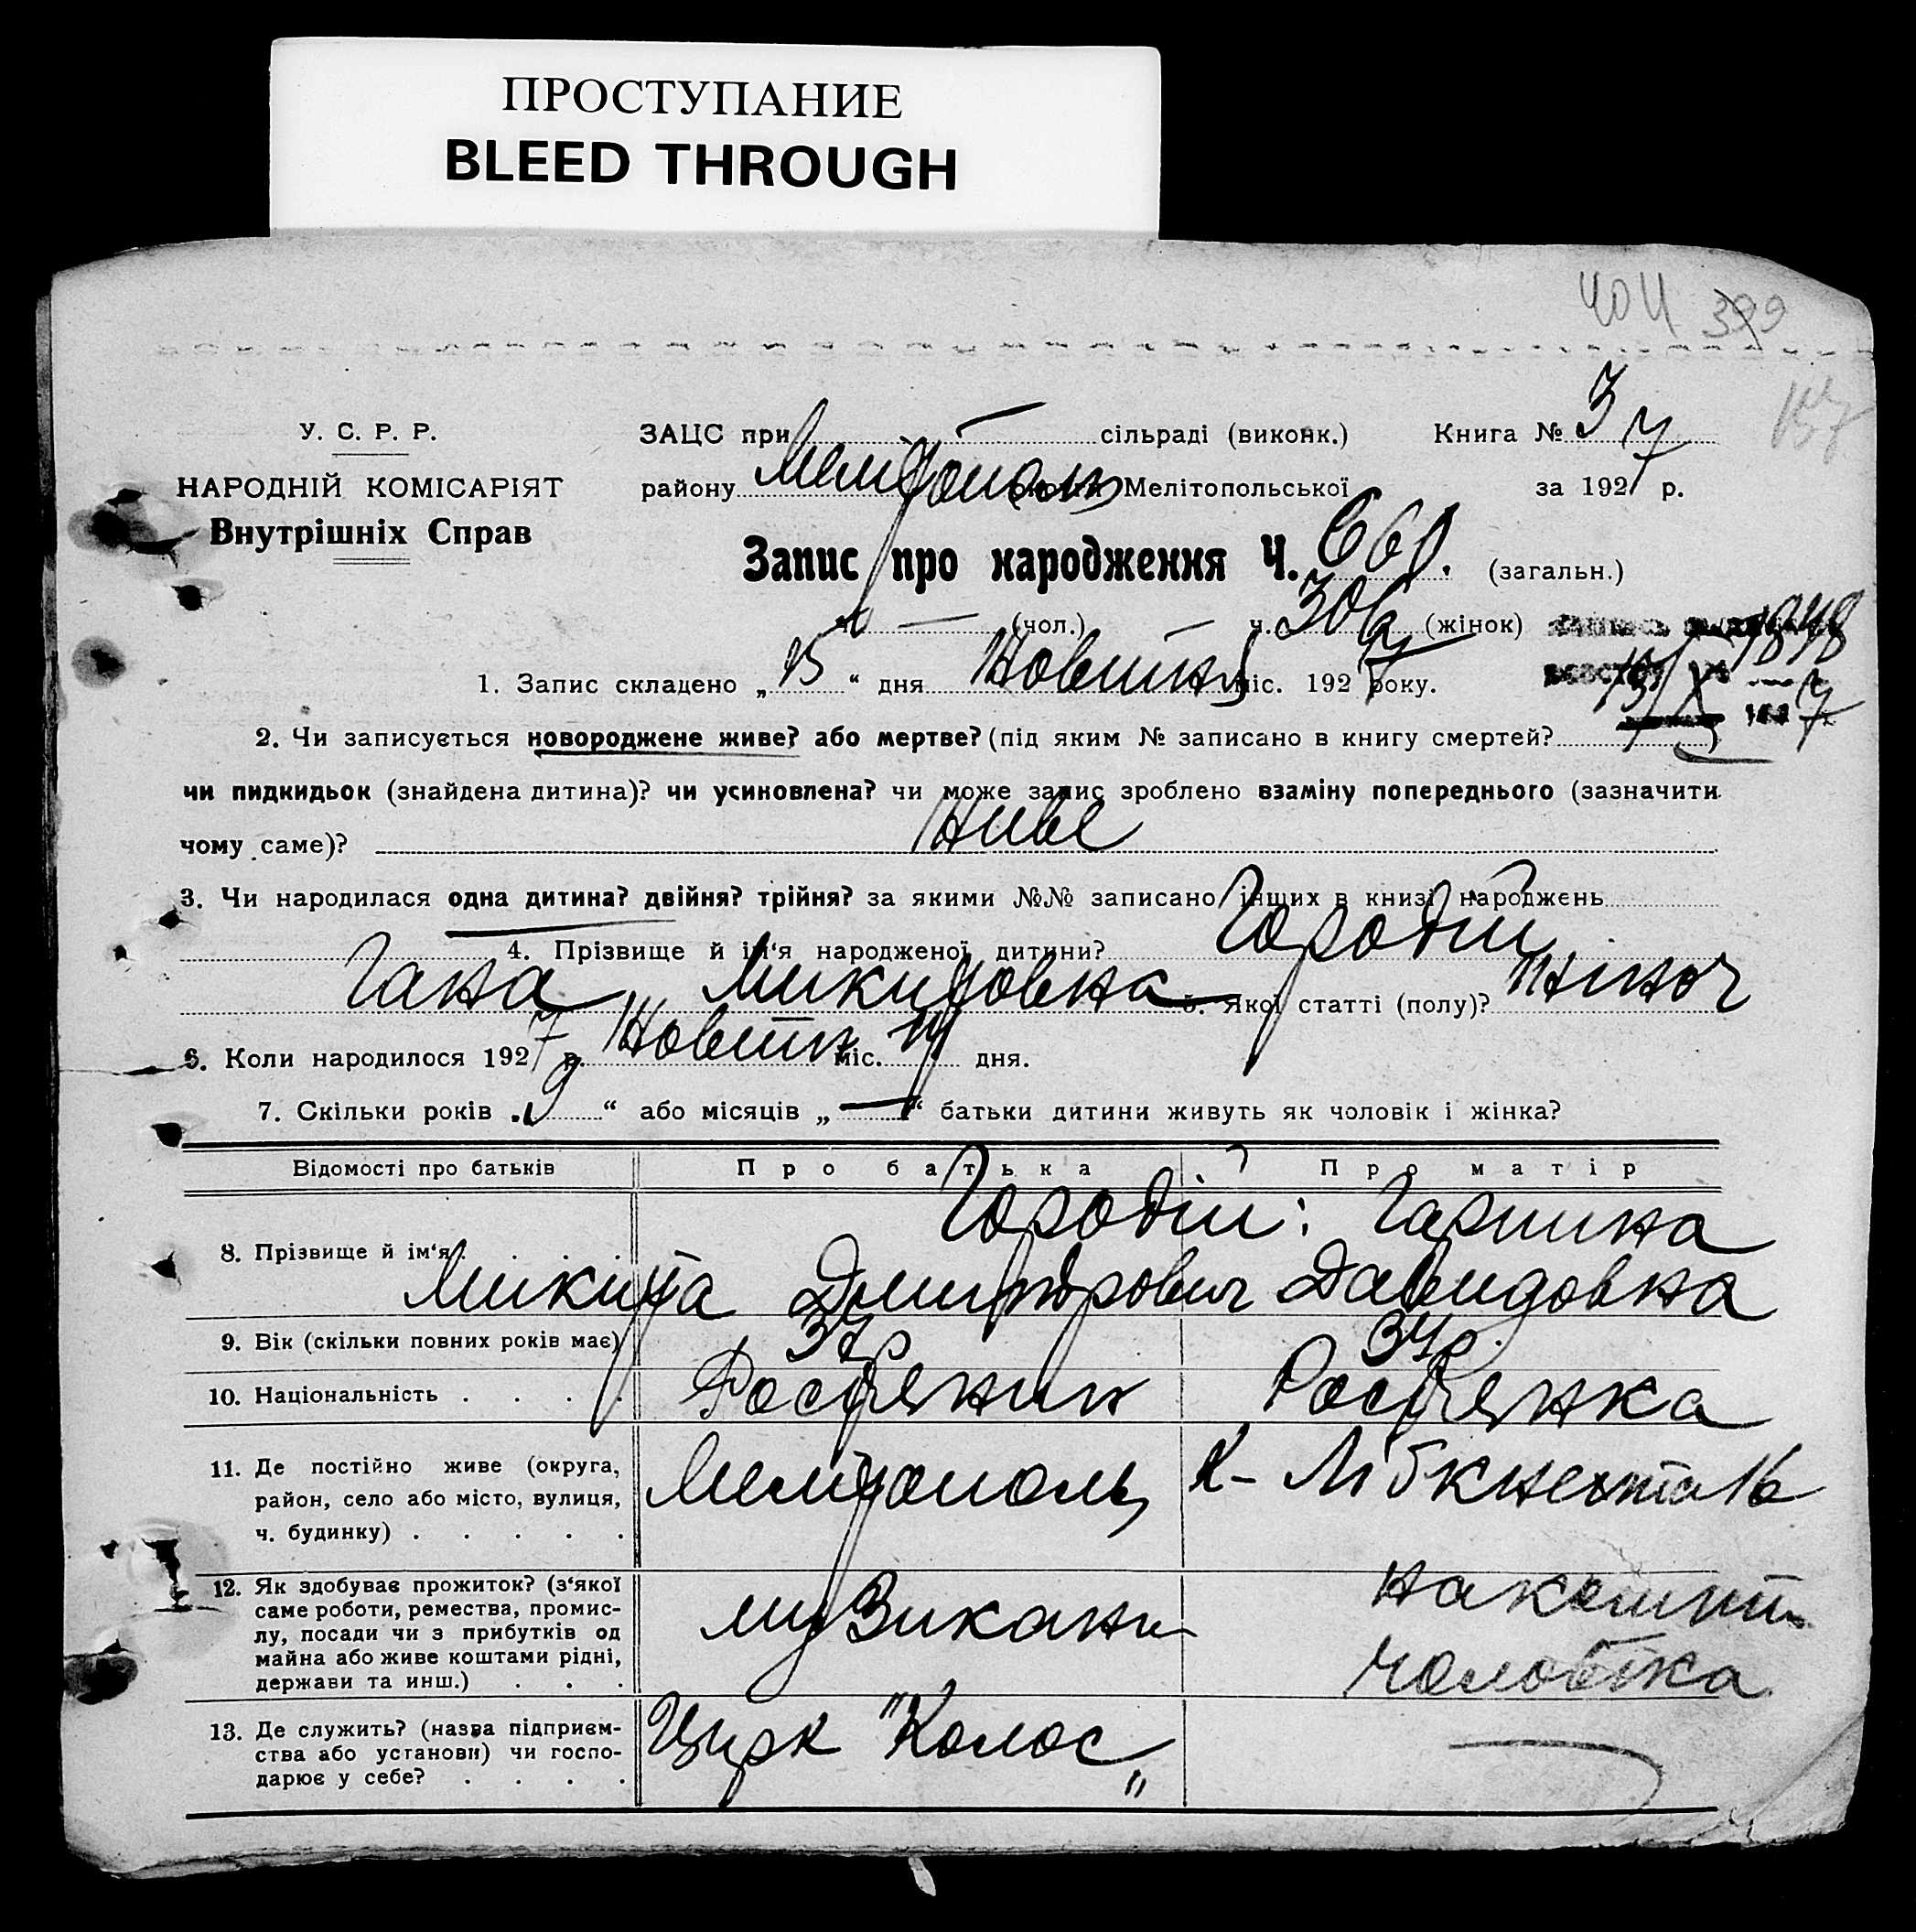 ПРОСТУПАНИЕ
BLEED THROUGH
399
У. С. Р. Р.
НАРОДНІЙ КОМІСАРІЯТ
Внутрішніх Справ
ЗАЦС при сільраді (виконк.) Книга № 3
району Мелітополь Мелітопольської за 1927 р.
Запис про народження Ч. 660. (загальн.)
ч. — (чол.) ч. 306 (жінок)
1. Запис складено „15“ дня Новитня міс. 1927 року.
2. Чи записується новороджене живе? або мертве? (під яким № записано в книгу смертей?
чи пидкидьок (знайдена дитина)? чи усиновлена? чи може запис зроблено взаміну попереднього (зазначити
чому саме)? живе
3. Чи народилася одна дитина? двійня? трійня? за якими №№ записано інших в книзі народжень
4. Прізвище й ім‘я народженої дитини? Городій
Гана Микитовна 5. Якої статті (полу)? жіноч
6. Коли народилося 1927 р. Новитн міс. дня.
7. Скільки років „9“ або місяців „—“ батьки дитини живуть як чоловік і жінка?
Відомості про батьків Про батька Про матір
8. Прізвище й ім‘я Городій: Гарпина
Микита Дмитрович Давидовна
9. Вік (скільки повних років має) 37р 34р.
10. Національність Росіянин Росіянка
11. Де постійно живе (округа, район, село або місто, вулиця, ч. будинку) Мелітополь К- Лібкнехта 16
12. Як здобуває прожиток? (з‘якої саме роботи, ремества, промислу, посади чи з прибутків од майна або живе коштами рідні, держави та инш.) музикант на кошти
чоловіка
13. Де служить? (назва підприємства або установи) чи господарює у себе? Цирк "Колос"